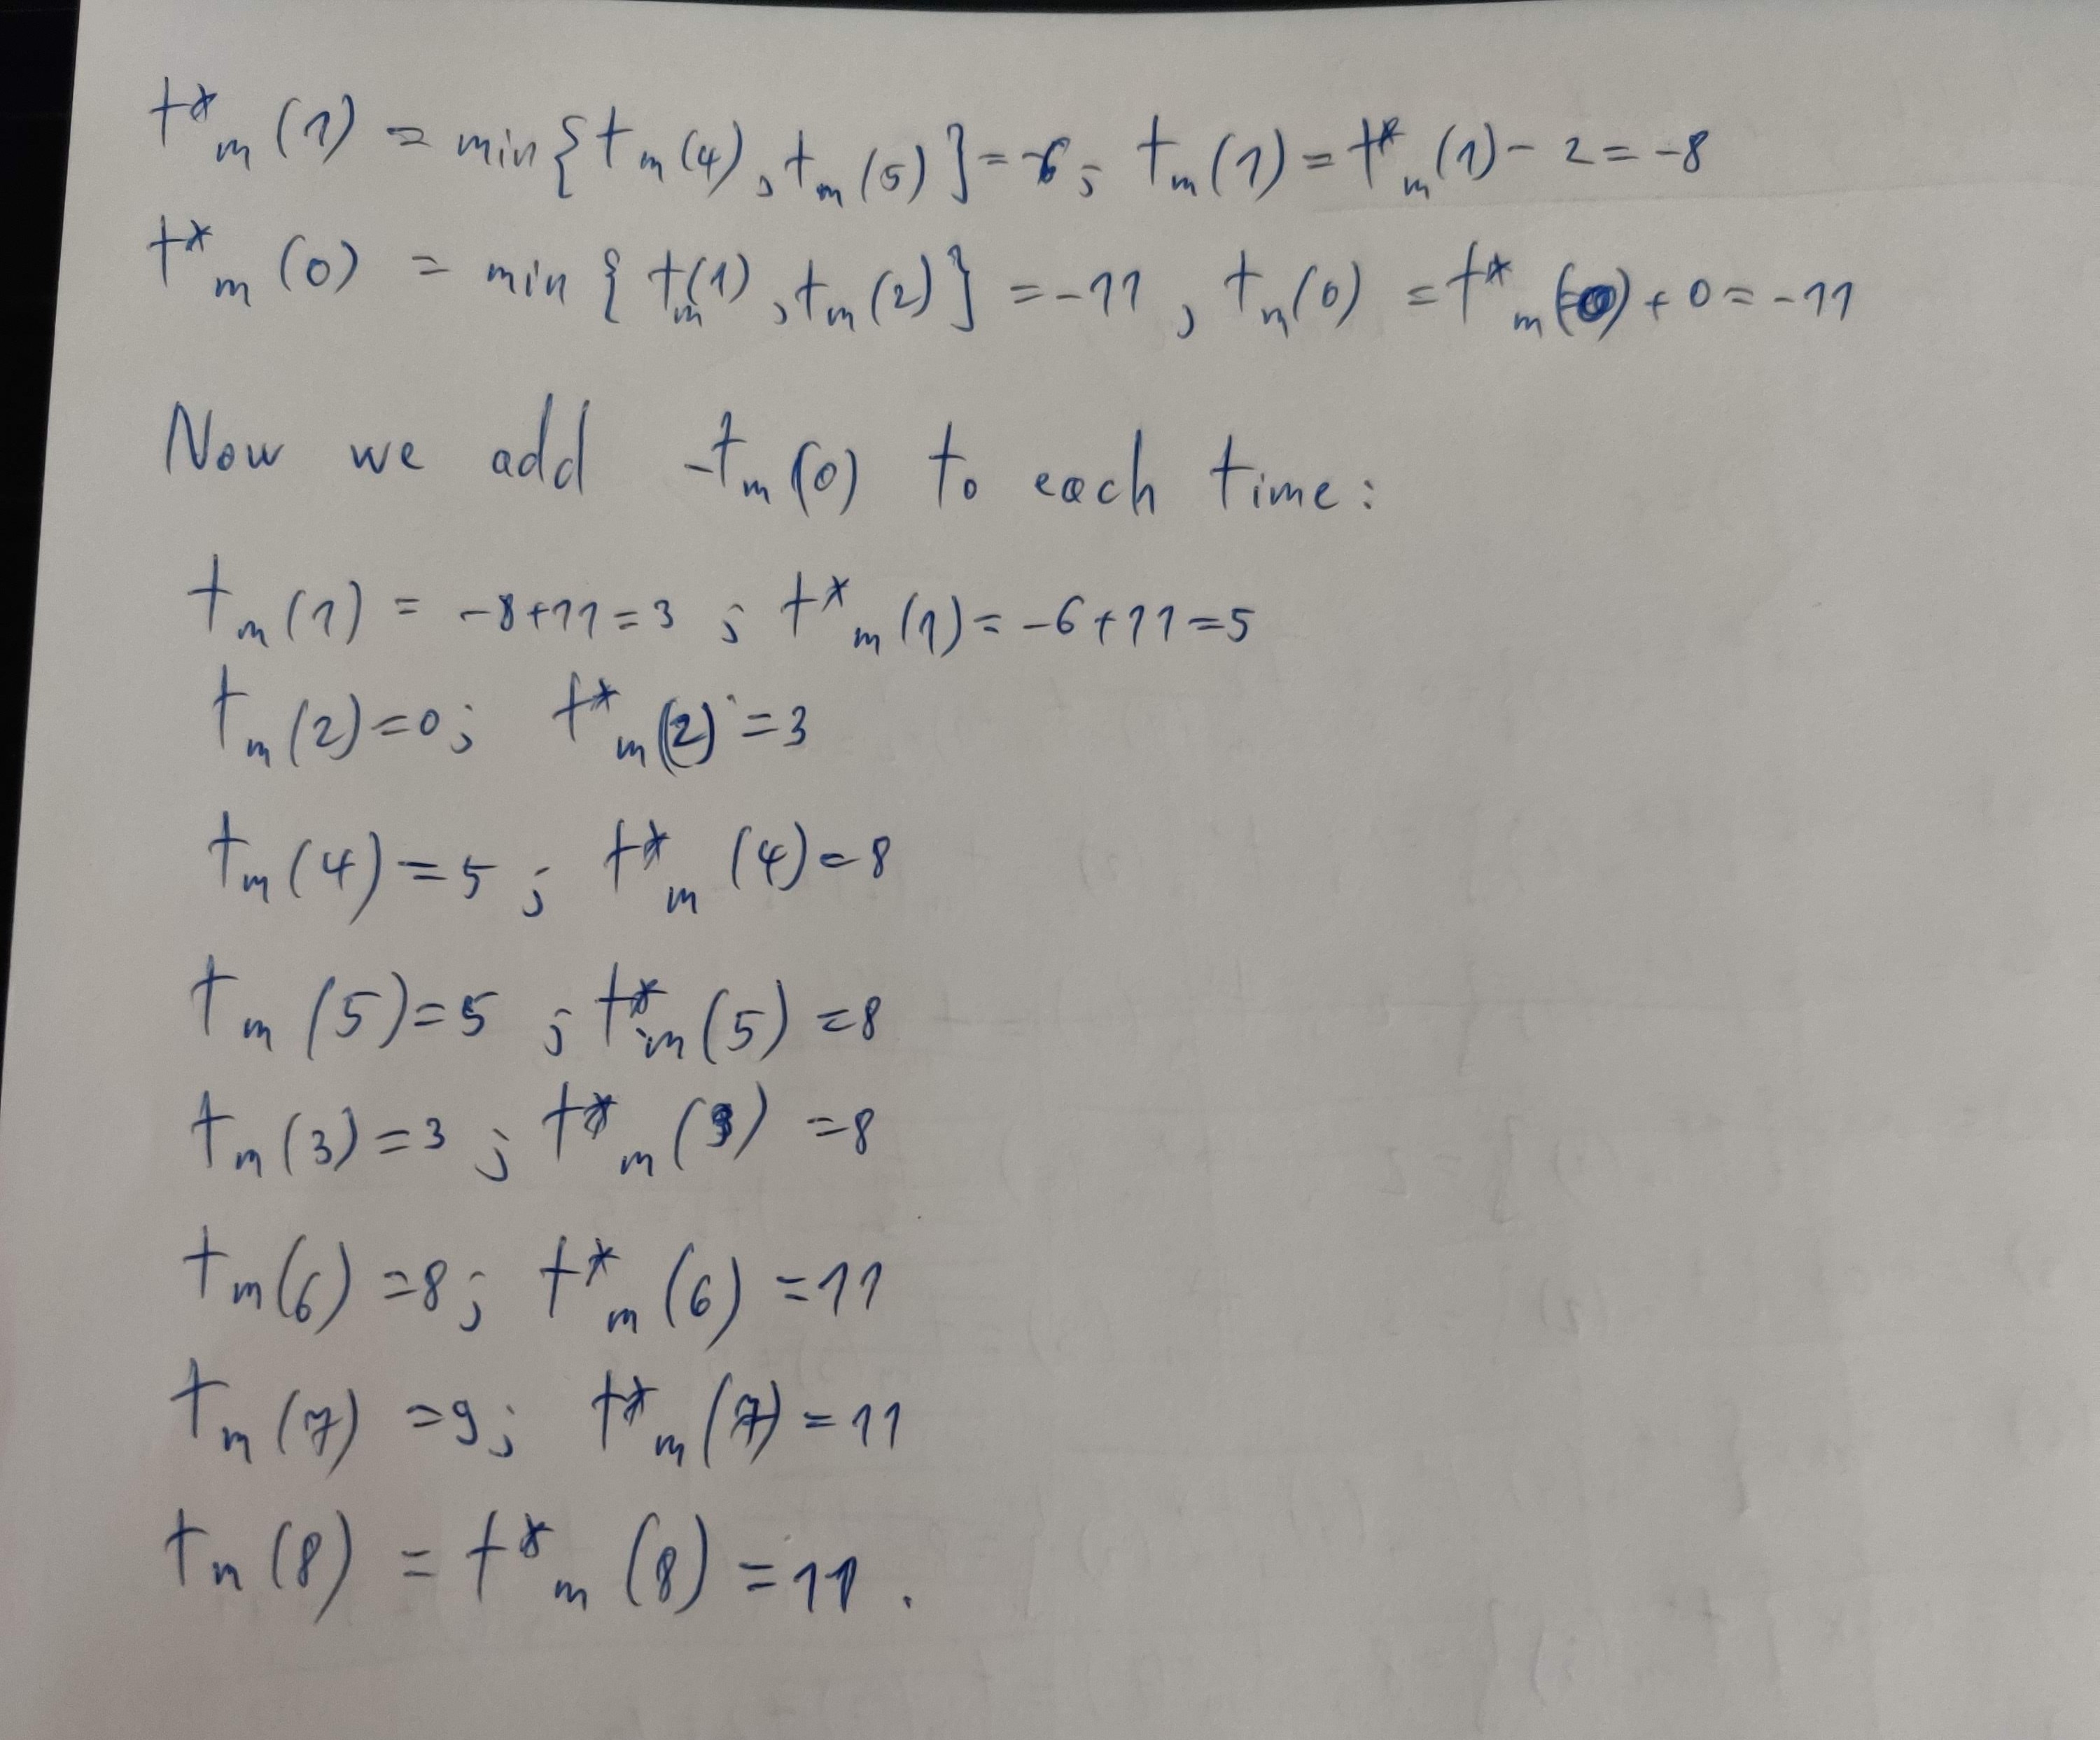 t*m(1) = min{tm(4), tm(5)} = -6; tm(1) = t*m(1) - 2 = -8
t*m(0) = min{tm(1), tm(2)} = -11, tm(0) = t*m(0) + 0 = -11
Now we add -tm(0) to each time:
tm(1) = -8+11=3; t*m(1) = -6+11=5
tm(2)=0; t*m(2)=3
tm(4)=5; t*m(4)=8
tm(5)=5; t*m(5)=8
tm(3)=3; t*m(3)=8
tm(6)=8; t*m(6)=11
tm(7)=9; t*m(7)=11
tm(8) = t*m(8) = 11.